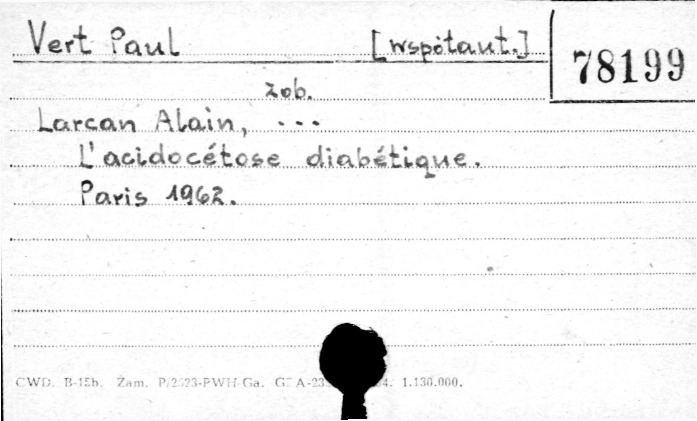 Vert Paul [współaut.]
78199
zob.
Larcan Alain, ---
L'acidocétose diabétique.
Paris 1962.
CWD. B-15b. Zam. P/2523-PWH-Ga. 1.130.000.